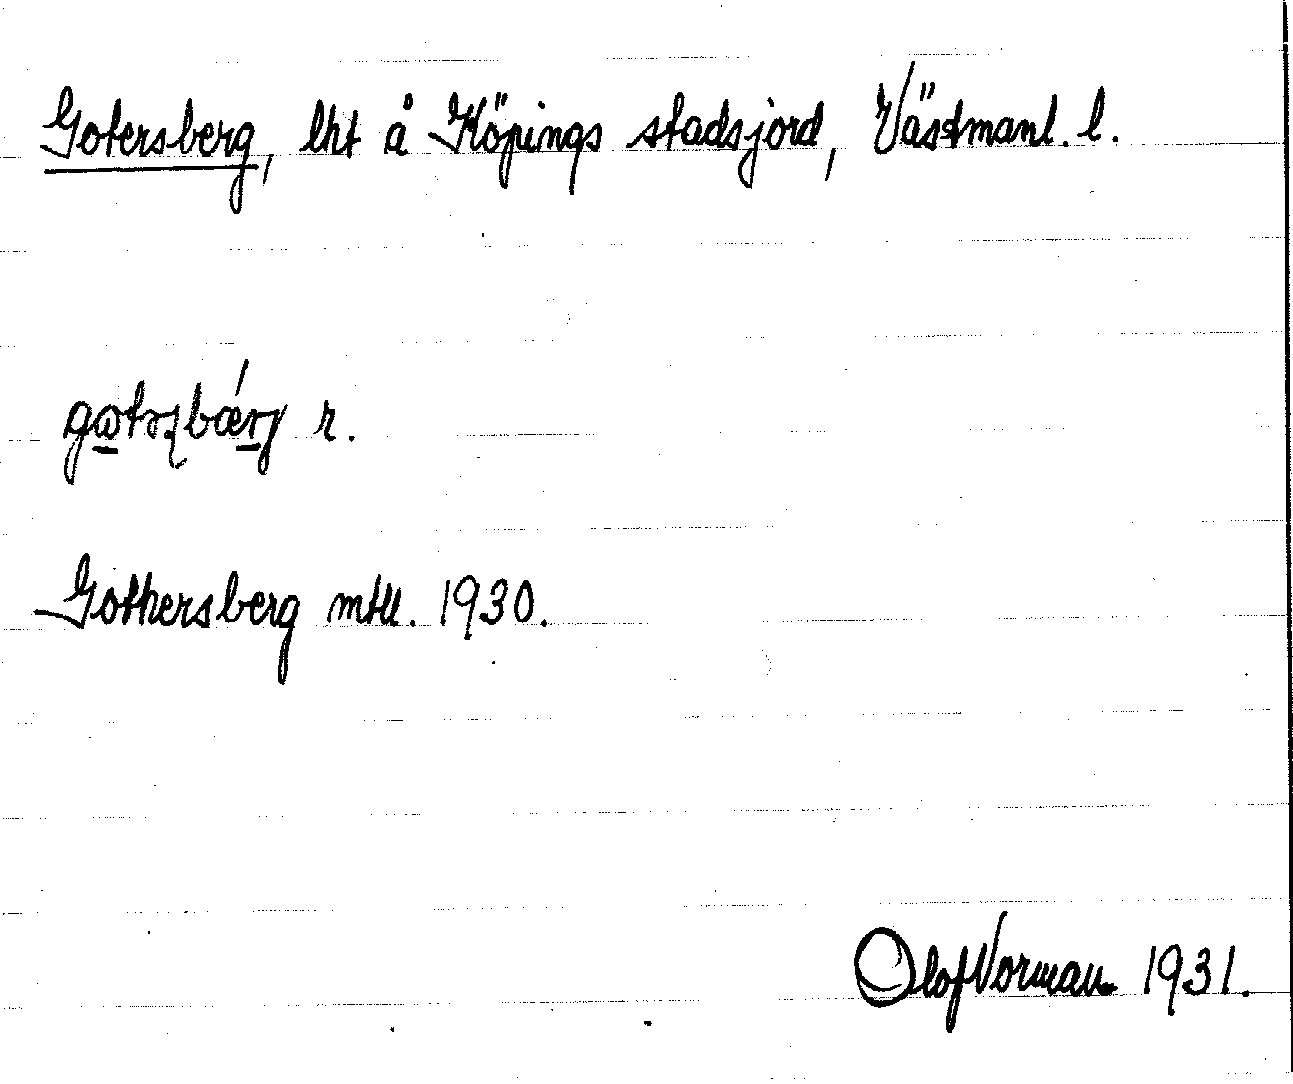 Gotersberg, lht å Köpings stadsjord, Västmanl. l.
r.
Gothersberg mtll. 1930.
Olof Norman 1931.